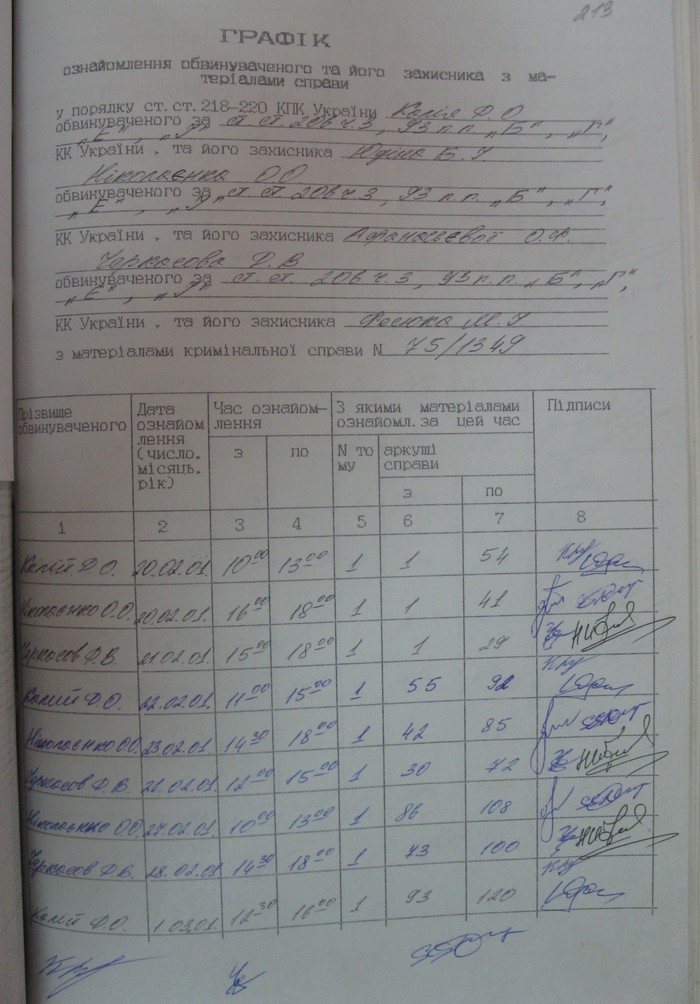 213
ГРАФІК
ознайомлення обвинуваченого та його захисника з ма-
теріалами справи
у порядку ст.ст.218–220 КПК України Копія Ф.О
обвинуваченого за ст ст 206 ч.3, 93 п.п. „Б", „Г",
„Е",
КК України , та його захисника Юдіна Б.І
Ніколаєнка О.О.
обвинуваченого за ст ст 206 ч.3, 93 п.п. „Б", „Г",
„Е",
КК України , та його захисника Афанасьєвої О.Ф.
Черкасова Ф.В
обвинуваченого за ст.ст. 206 ч.3, 93 п.п. „Б", „Г",
„Е",
КК України , та його захисника Фесюка М.І
з матеріалами кримінальної справи N 75/1349
Прізвище обвинуваченого Дата ознайом лення (число. місяць. рік) Час ознайом– лення З якими матеріалами ознайомл.за цей час Підписи
з по N то му аркуші справи
з по
1 2 3 4 5 6 7 8
Ф.О. 20.02.01. 10 00 13 00 1 1 54
Ніколаєнко О.О. 20.02.01. 16 00 18 00 1 1 41
Черкасов Ф.В. 21.02.01. 15 00 18 00 1 1 29
Ф.О. 22.02.01. 11 00 15 00 1 55 92
Ніколаєнко О.О. 23.02.01. 14 30 18 00 1 42 85
Черкасов Ф.В. 26.02.01. 12 00 15 00 1 30 72
Ніколаєнко О.О. 27.02.01. 10 00 13 00 1 86 108
Черкасов Ф.В. 28.02.01. 14 30 18 00 1 73 100
Ф.О. 1.03.01. 12 30 16 00 1 93 120